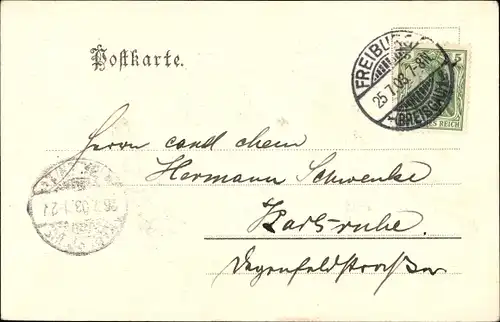 Postkarte.
FREIBURG
25.7.03.7-8N.
(BREISGAU)
5
REICH
Herrn cand chem
Hermann Schwenke
Karlsruhe.
Degenfeldstrasse
26.7.03.1-2